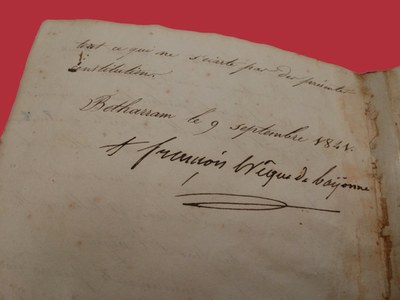 tout ce qui ne s'écarte pas des présentes
institutions
Betharram le 9 septembre 1841.
+ françois Evêque de bayonne